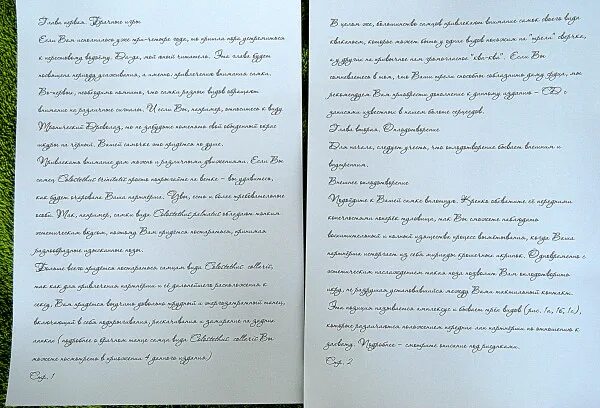 Глава первая. Брачные игры
Если Вам исполнилось уже три-четыре года, но пришла пора устремиться
к нерестовому водоёму. Да-да, мой юный читатель. Эта глава будет
посвящена периоду ухаживания, а именно, привлечению внимания самки.
Во-первых, необходимо понять, что самки разных видов обращают
внимание на различные сигналы. И если Вы, например, относитесь к виду
Тропический Древолаз, но не забудьте поменять свой обыденный окрас
шкуры на чёрный. Вашей самочке это придётся по душе.
Привлекать внимание дам можно и различными движениями. Если Вы
самец Colostethus trinitatis просто попрыгайте на ветке - вы удивитесь,
как будет очарована Ваша партнёрша. Увы, есть и более требовательные
особи. Так, например, самки вида Colostethus palmatus обладают тонким
эстетическим вкусом, поэтому Вам придётся постараться, принимая
разнообразные изысканные позы.
Больше всего придётся постараться самцам вида Colostethus collaris,
так как для привлечения партнёрши и её дальнейшего расположения к
сексу, Вам придётся выучить довольно трудный и энергозатратный танец,
включающий в себя подпрыгивания, раскачивания и замирание на задних
лапках (подробнее о брачном танце самца вида Colostethus collaris Вы
можете посмотреть в приложении 4 данного издания.)
Стр. 1
В целом же, большинство самцов привлекают внимание самок своего вида
кваканьем, которое может быть у одних видов похожим на "трели" сверчка,
а у других на привычное нам громогласное "ква-ква". Если Вы
сомневаетесь в том, что Ваши трели способны обольстить даму, мы
рекомендуем Вам приобрести дополнение к данному изданию - CD с
записями известных в нашем болоте сердцеедов.
Глава вторая. Оплодотворение
Для начала, следует учесть, что оплодотворение бывает внешним и
внутренним.
Внешнее оплодотворение
Подойдите к Вашей самке вплотную. Крепко обхватите её передними
конечностями поперёк туловища, так Вы сможете наблюдать
восхитительный и полный изящества процесс вымётывания, когда Ваша
партнёрша исторгает из себя мириады крошечных икринок. Одновременно с
эстетическим наслаждением такая поза позволит Вам оплодотворить
икру, не разрушая установившийся между Вами тактильный контакт.
Эта позиция называется амплексус и бывает трёх видов (рис. 1а, 1б, 1с),
которые различаются положением передних лап партнёрши по отношению к
захвату. Подробнее - смотрите описание под рисунками.
Стр. 2